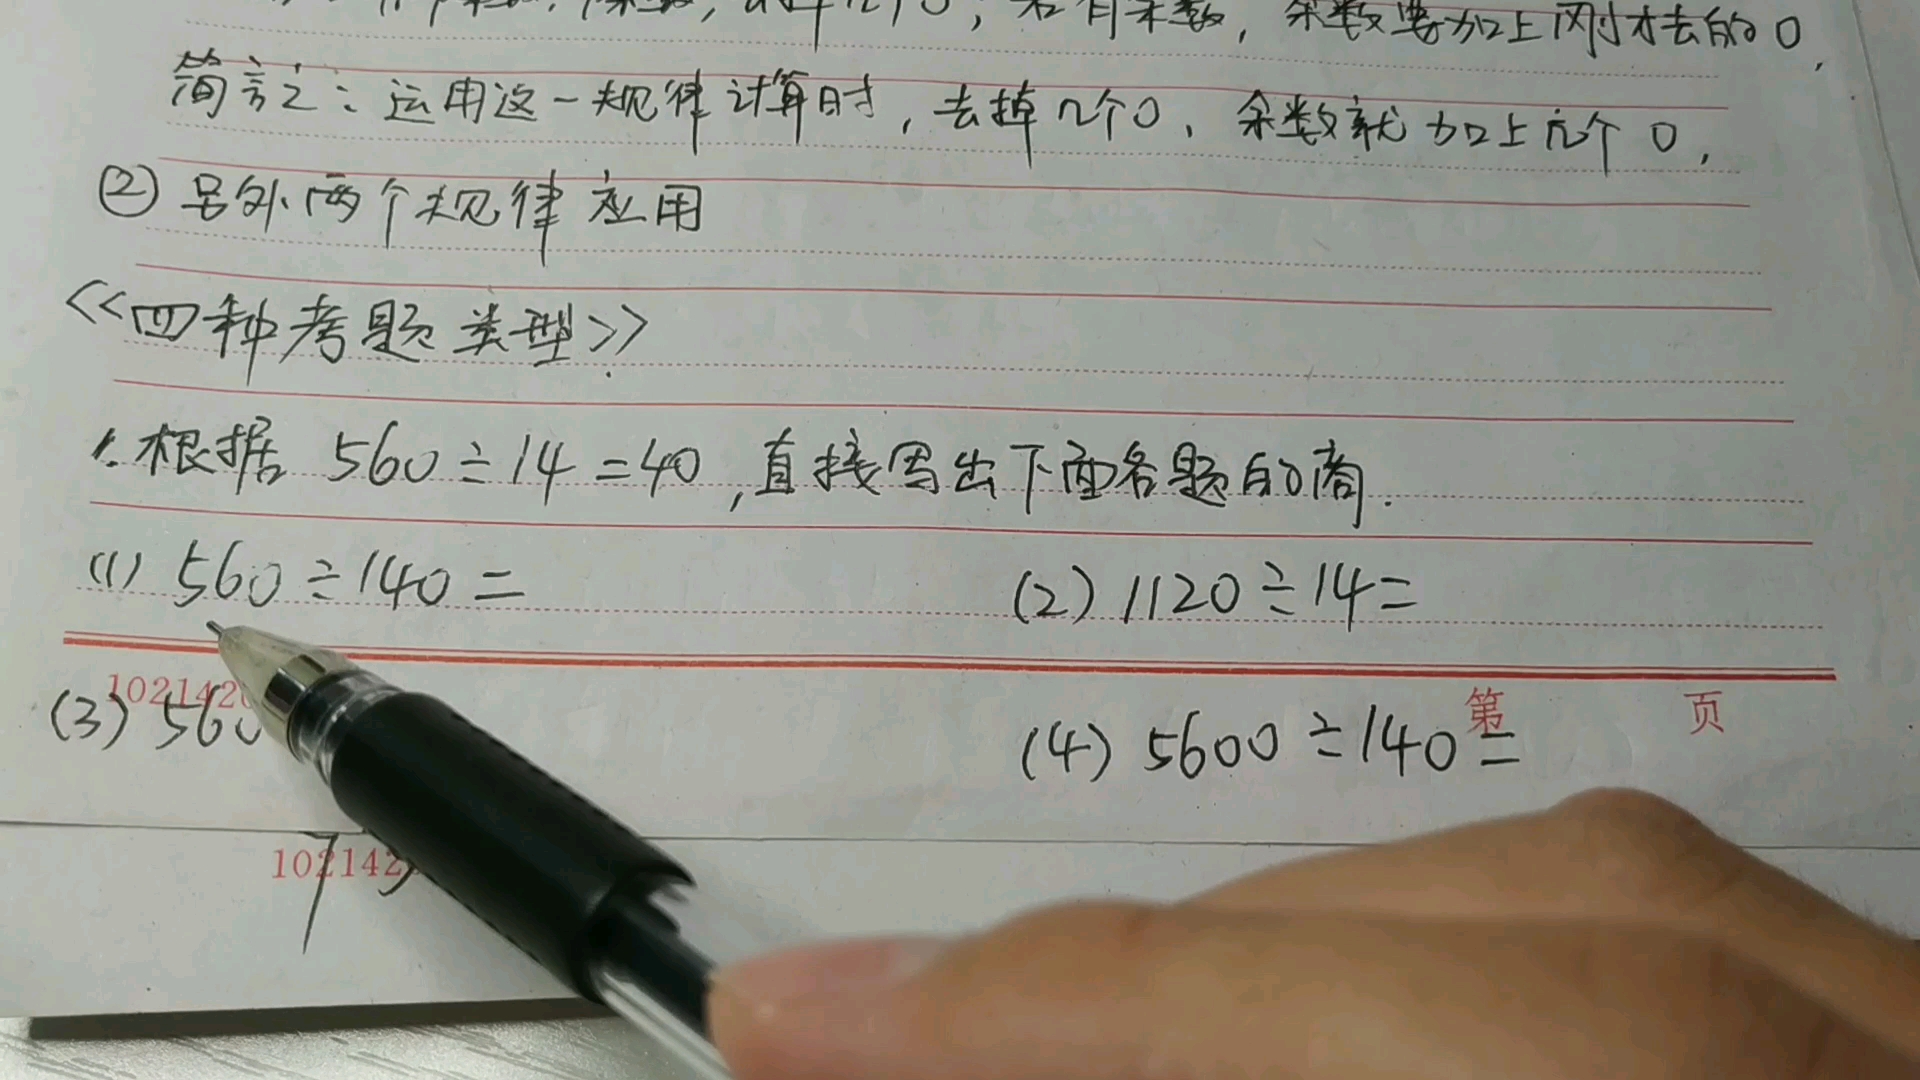 若有余数，余数要加上刚才去的0，
简言之：运用这一规律计算时，去掉几个0，余数就加上几个0，
② 另外两个规律应用
<<四种考题类型>>
1.根据 560÷14=40,直接写出下面各题的商.
(1) 560÷140=
(2) 1120÷14=
1021420
第 页
(3) 560
(4) 5600÷140=
102142